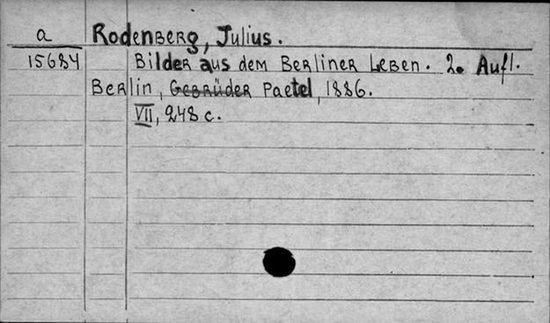 a Rodenberg, Julius.
15684 Bilder aus dem Berliner Leben. 2. Aufl.
Berlin, Gebrüder Paetel, 1886.
VII, 248 c.